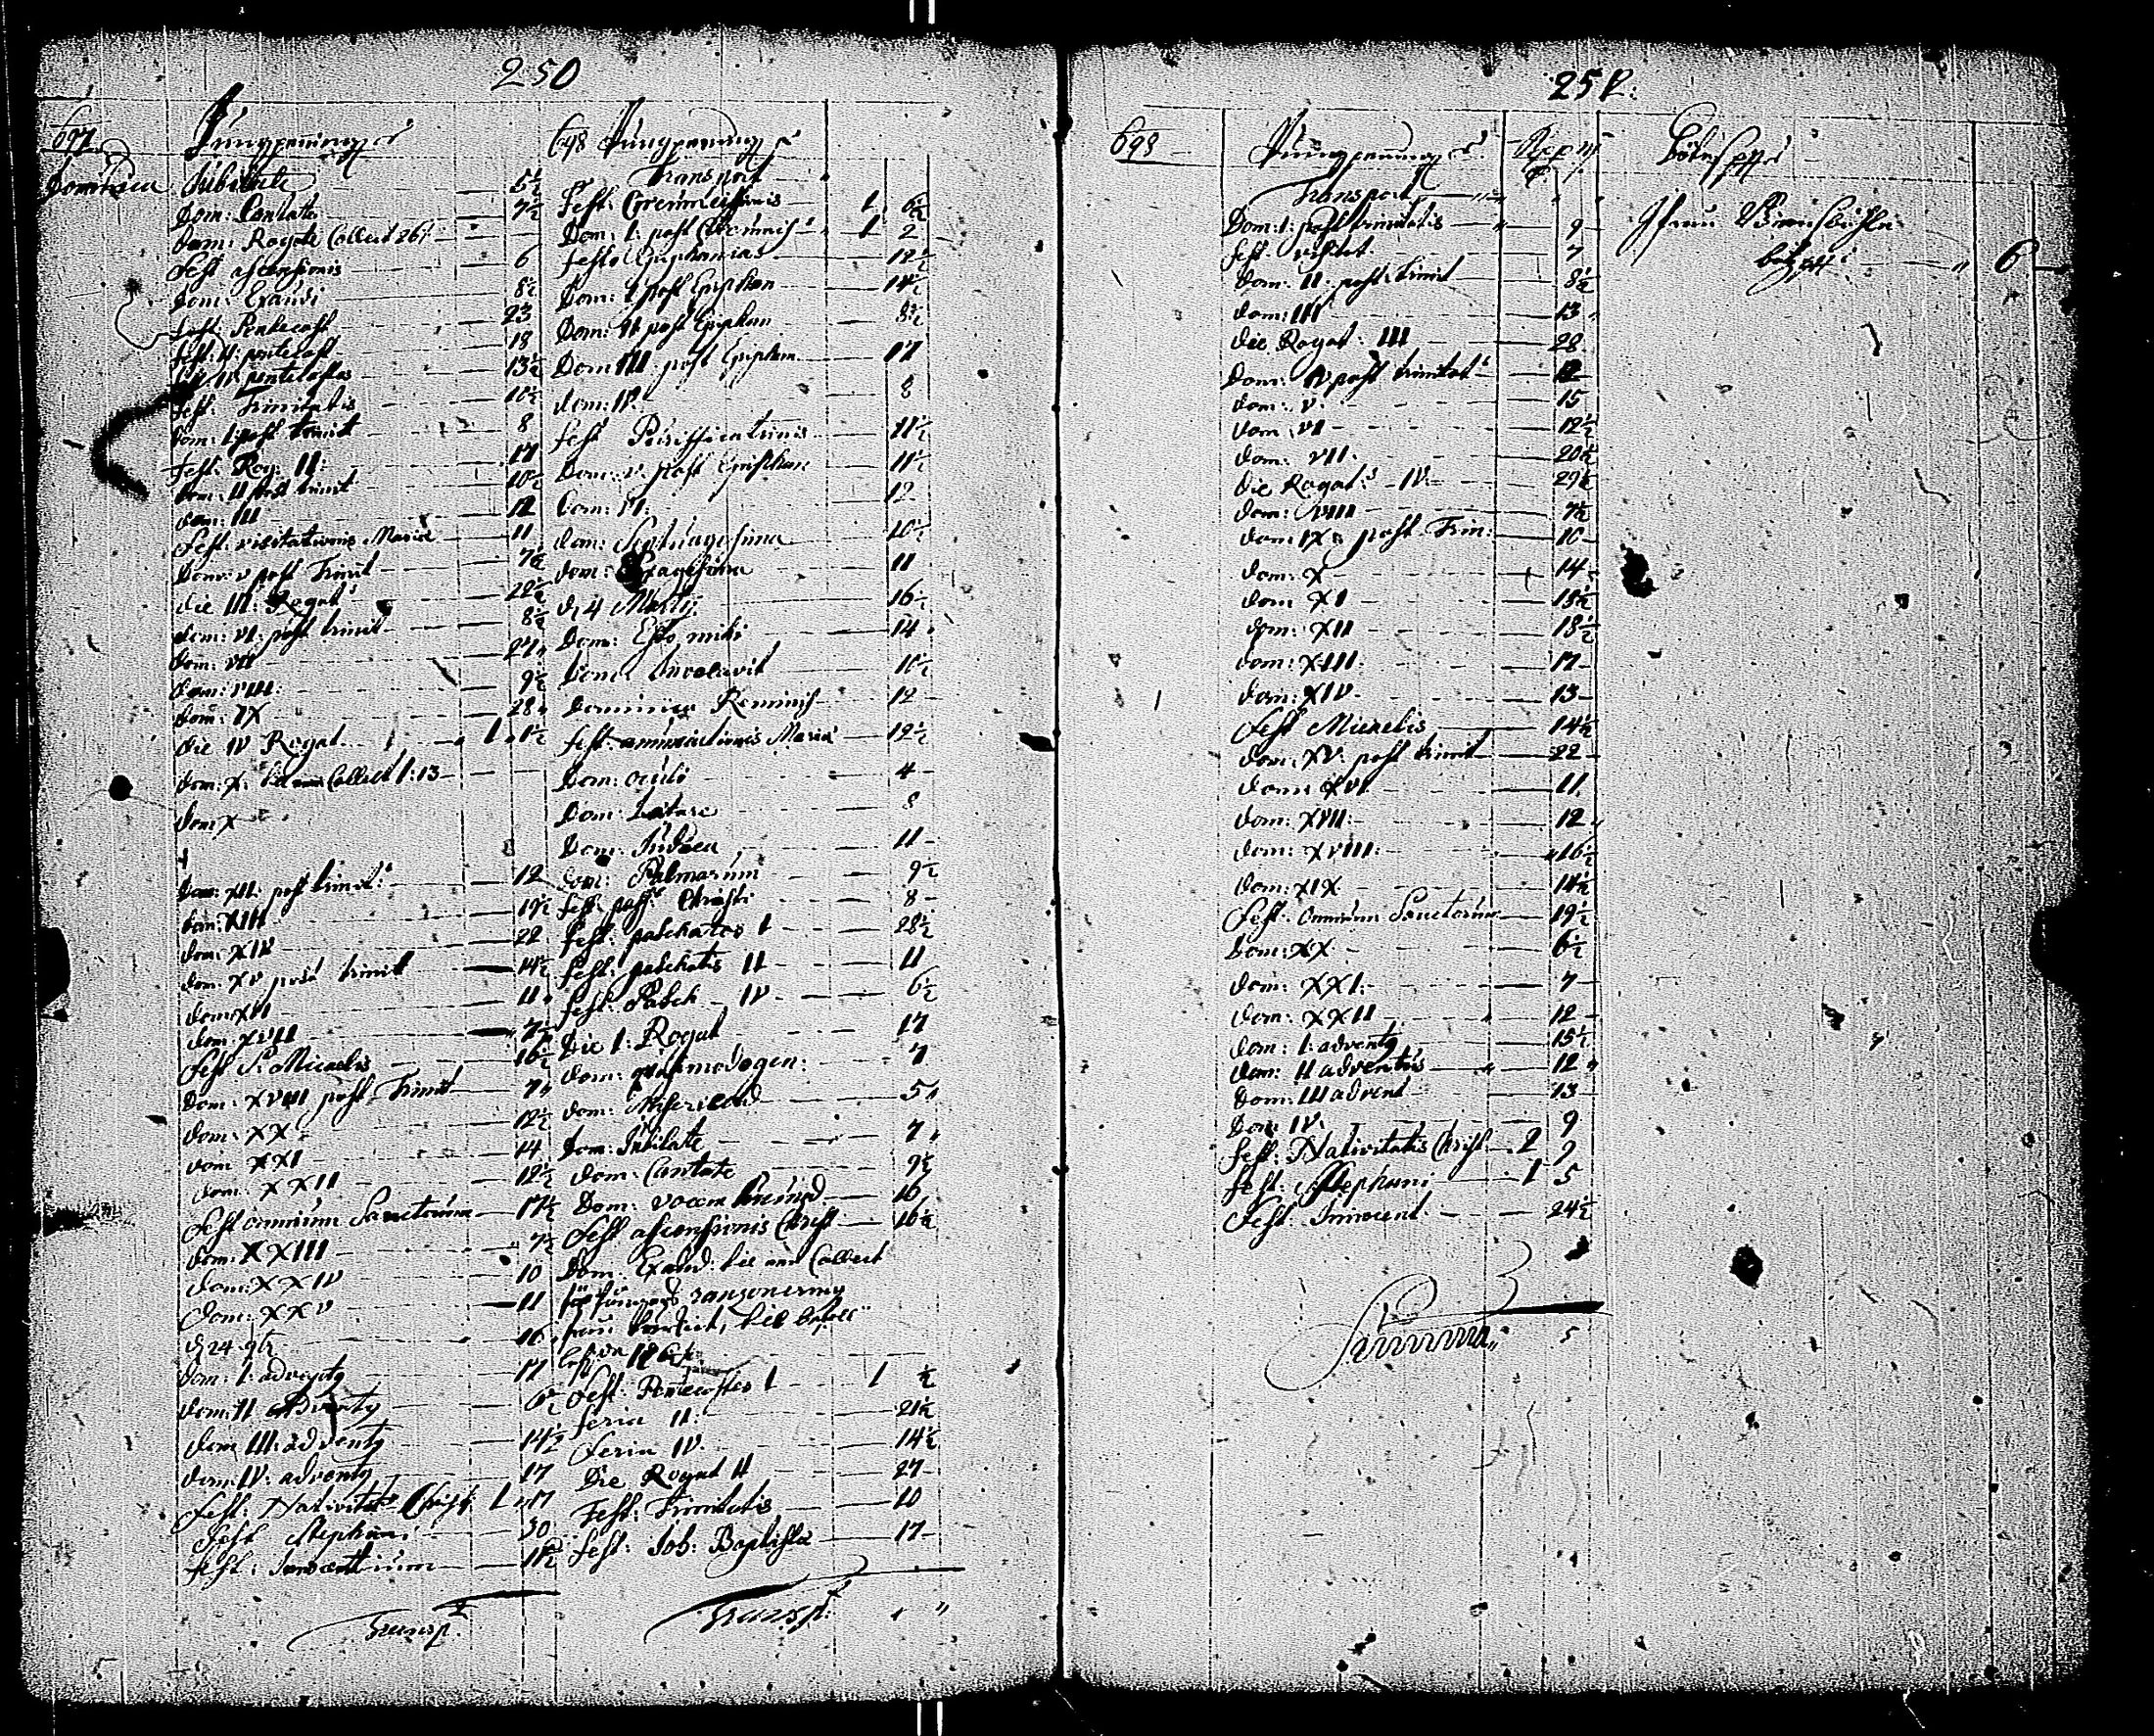 250
697
Pungpenning
Dominica Jubilate 5½
Dom: Cantate 7½
Dom: Rogate Collect 26
Fest ascensionis 6
Dom: Exaudi 8½
Fest. Pentecost 23
Fest. II. pentecost 18
IV pentecostes 13½
Fest. Trinitatis 10½
Dom: I. post trinit 8
Fest. Rog. II: 17
Dom: II post trinit 10½
Dom: III 12
Fest: visitationis Mariæ 11
Dom: V post Trinit 7½
Die III: Rogat 22½
Dom: VI: post trinit 8½
Dom: VII 21
Dom: VIII: 9½
Dom: IX 28
Die IV Rogat. 1 1½
Dom: X. Collect 1:13
Dom X
Dom: XII: post trinit: 12
Dom: XIII 19½
Dom: XIV 22
Dom: XV post trinit 14½
Dom: XVI 11
Dom: XVII 7½
Fest S. Micaelis 16½
Dom: XVIII post Trinit 7
Dom: XX 12½
Dom XXI 14
Dom: XXII 12½
Fest omnium Sanctorum 17½
Dom: XXIII 7½
Dom: XXIV 10
Dom: XXV 11
24 9br 16
Dom: I: adventg 17
Dom: II adventg 6½
Dom III: adventg 14½
Dom: IV. adventg 17
Fest. Nativitat Christi 1 17
Fest Stephani 30
Fest: Innocentium 11½
Transp.
698 Pungpenning
Transport
Fest. Circumcisionis 1 6½
Dom: I: post Circumcis 1 2
Fest. Epiphanias 12½
Dom: I post Epiphan 14½
Dom: II post Epiphan 8½
Dom III. post Epiphan. 17
Dom: IV. 8
Fest Purificationis 11½
Dom: V. post Epiphan 11½
Dom: VI: 12
Dom: Septuagesima 10½
Dom: Sexagesima 11
4 Martij 16½
Dom: Esto mihi 14
Dom: Invocavit 10½
Dominica Reminis 12
Fest: annunciationis Mariæ 12½
Dom: oculi 4
Dom: Lætare 8
Dom: Judica 11
Dom: Palmarum 9½
Fest: pass: Christi 8
Fest: paschatos I 28½
Fest: paschatis II 11
Fest: Pasch IV 6½
Die I: Rogat 17
Dom: quasimodogen: 7
Dom: Misericord 5
Dom: Jubilate 7
Dom: Cantate 9½
Dom: vocem 16
Fest ascensionis Christ 16½
Dom: Exaud: Collect
ranzonering
Fest: Pentecostes I 1 ½
Feria II: 21½
Feria IV. 14½
Die Rogat II 27
Fest: Trinitatis 10
Fest: Joh: Baptistæ 17
Transp:
251:
698
Pungpenning
Transport
Dom: I: post trinitatis 9
Fest. visitat. 7
Dom: II: post trinit 8½
Dom: III 13
Die Rogat: III 28
Dom: IV post trinitat 12
Dom: V. 15
Dom VI 12½
Dom: VII. 20½
Die Rogat: IV. 29½
Dom: VIII 7½
Dom IX post Trin: 10
Dom: X 14
Dom XI 13½
Dom: XII 18½
Dom: XIII 17
Dom: XIV 13
Fest Micaelis 14½
Dom: XV: post trinit 22
Dom: XVI 11
Dom: XVII: 12
Dom: XVIII: 16½
Dom: XIX 14½
Fest: omnium Sanctorum 19½
Dom: XX 6½
Dom: XXI: 7
Dom: XXII 12
Dom: I: adventg 15½
Dom: II adventus 12
Dom: III advent 13
Dom IV. 9
Fest: Nativitatis Christ 2 9
Fest. Stephani 1 5
Fest: Innocent 24½
Summa
6